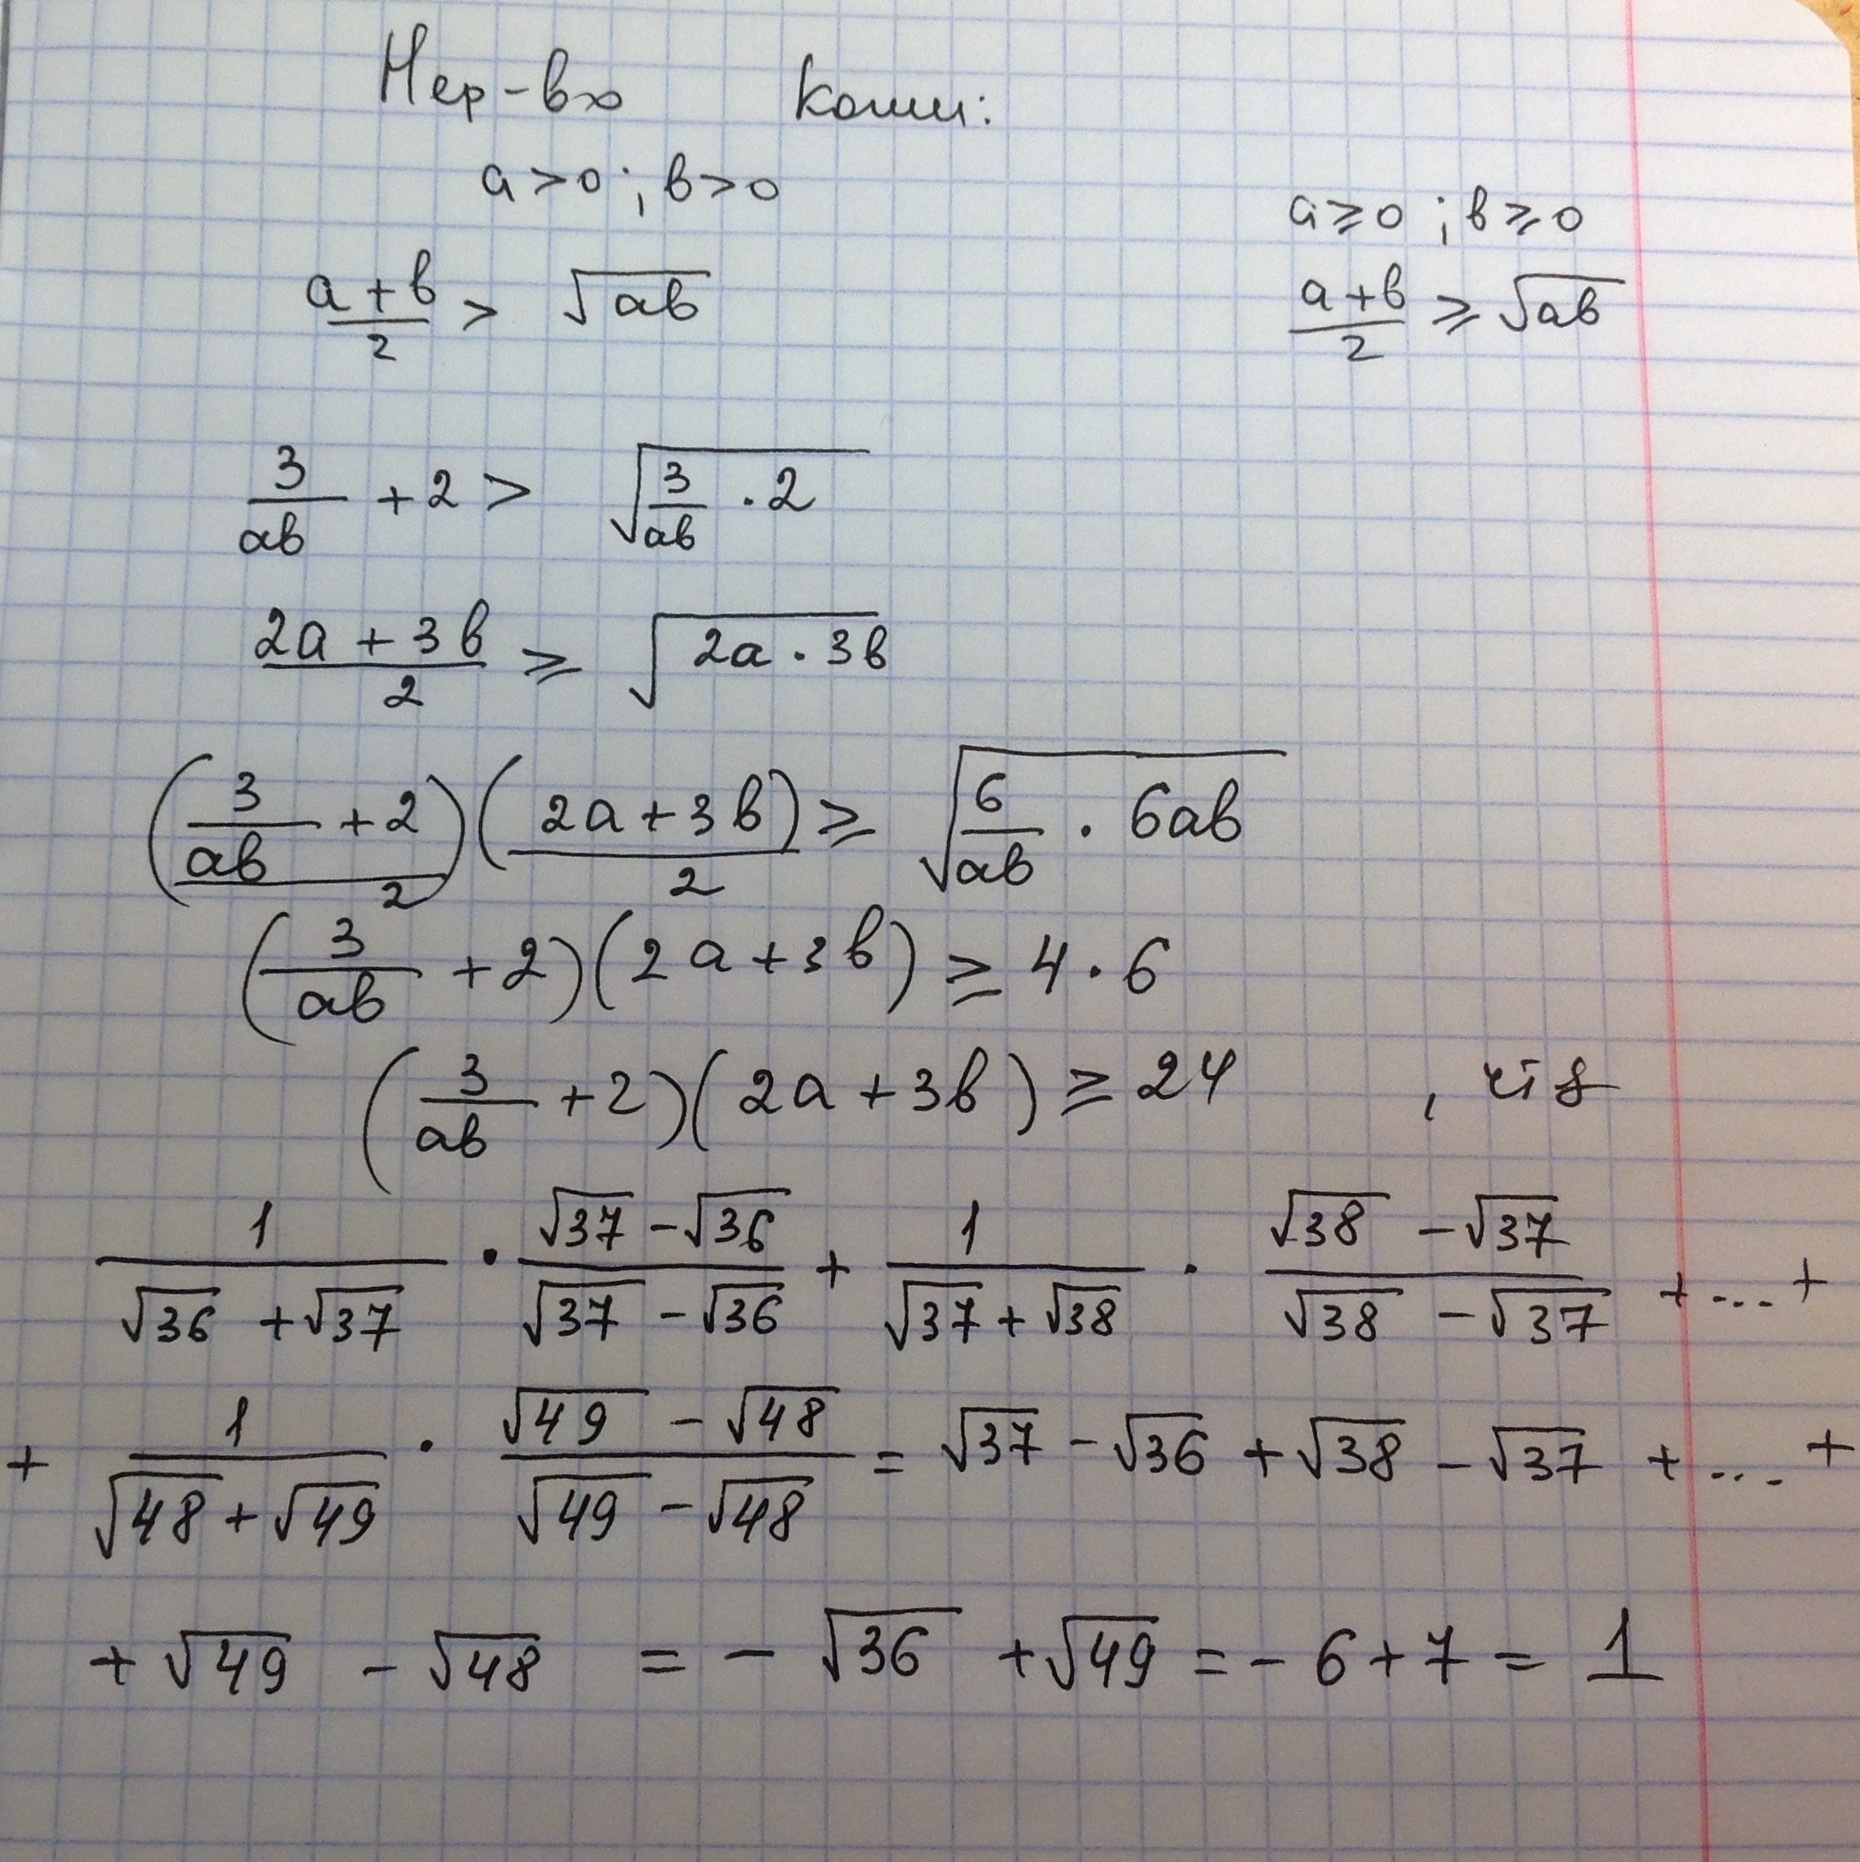 Нер-во Коши:
a > 0 ; в > 0
a ≥ 0 ; в ≥ 0
(a + в)/2 > √(aв)
(a + в)/2 ≥ √(aв)
3/(aв) + 2 > √(3/(aв) · 2)
(2a + 3в)/2 ≥ √(2a · 3в)
((3/(aв) + 2)/2)((2a + 3в)/2) ≥ √(6/(aв) · 6aв)
(3/(aв) + 2)(2a + 3в) ≥ 4 · 6
(3/(aв) + 2)(2a + 3в) ≥ 24 ,
1/(√36 + √37) · (√37 - √36)/(√37 - √36) + 1/(√37 + √38) · (√38 - √37)/(√38 - √37) + ... +
+ 1/(√48 + √49) · (√49 - √48)/(√49 - √48) = √37 - √36 + √38 - √37 + ... +
+ √49 - √48 = - √36 + √49 = - 6 + 7 = 1